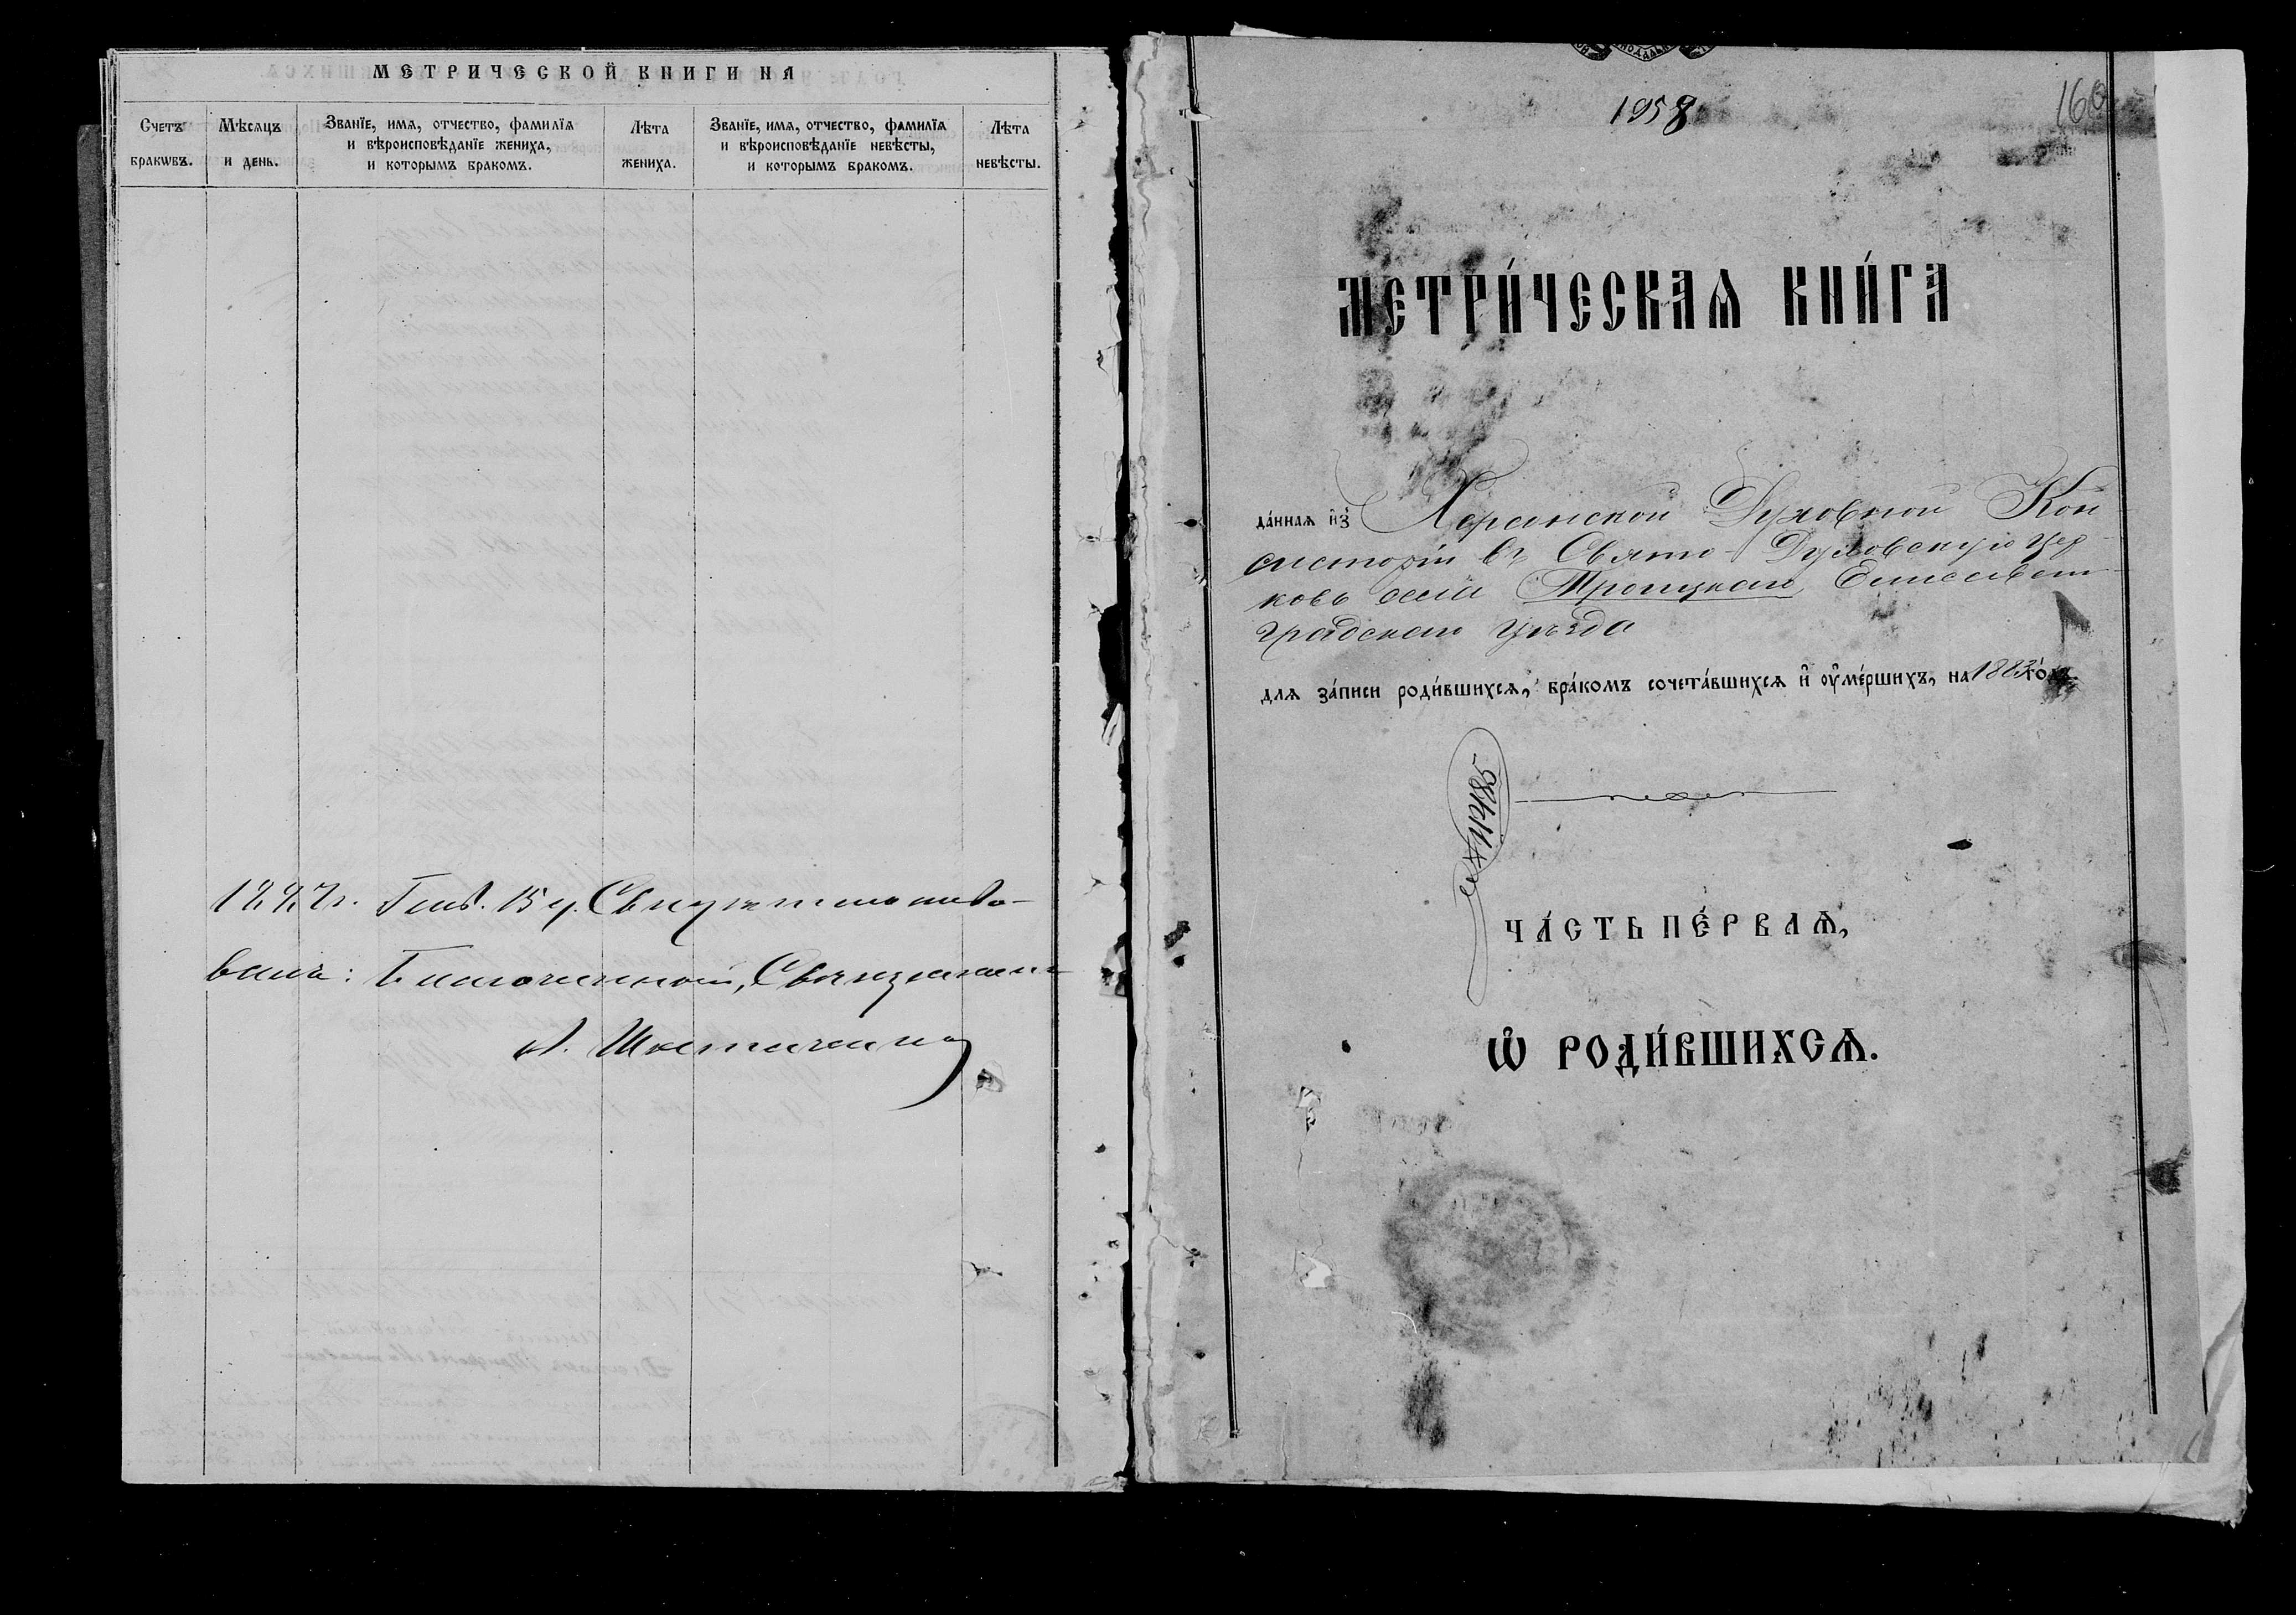 МЕТРИЧЕСКОЙ КНИГИ НА
Счетъ браковъ.
Мѣсяцъ и день.
Званїе, имѧ, отчество, фамилїѧ
и вѣроисповѣданїе жениха,
и которымъ бракомъ.
Лѣта жениха.
Званїе, имѧ, отчество, фамилїѧ
и вѣроисповѣданїе невѣсты,
и которымъ бракомъ.
Лѣта невѣсты.
15 ч. Свидѣтельство-
валъ: Благочинный, Священникъ
1958
160
МЕТРИ́ЧЕСКАѦ КНИ́ГА
да́нная из Херсонской Духовной Кон
систоріи въ Свято-Духовскую цер-
ковь села Троицкаго Елисавет-
градскаго уѣзда
для за́писи роди́вшихсѧ, бра́комъ сочета́вшихсѧ и оуме́ршихъ, на 1883 го́дъ.
ЧА́СТЬ ПЕ́РВАѦ,
Ѡ РОДИ́ВШИХСѦ.